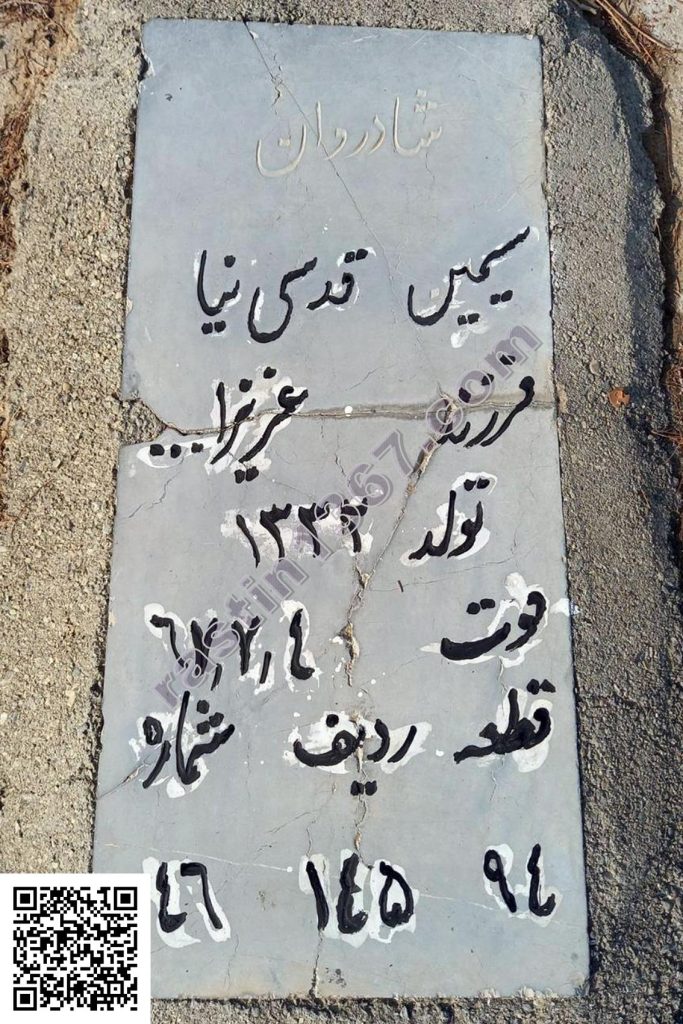 شادروان
سیمین قدسی نیا
فرزند
تولد ۱۳۳۲
فوت ۶۷٫۷٫۴
قطعه ردیف شماره
۹۴ ۱۴۵ ۴۶
rastin1367.com